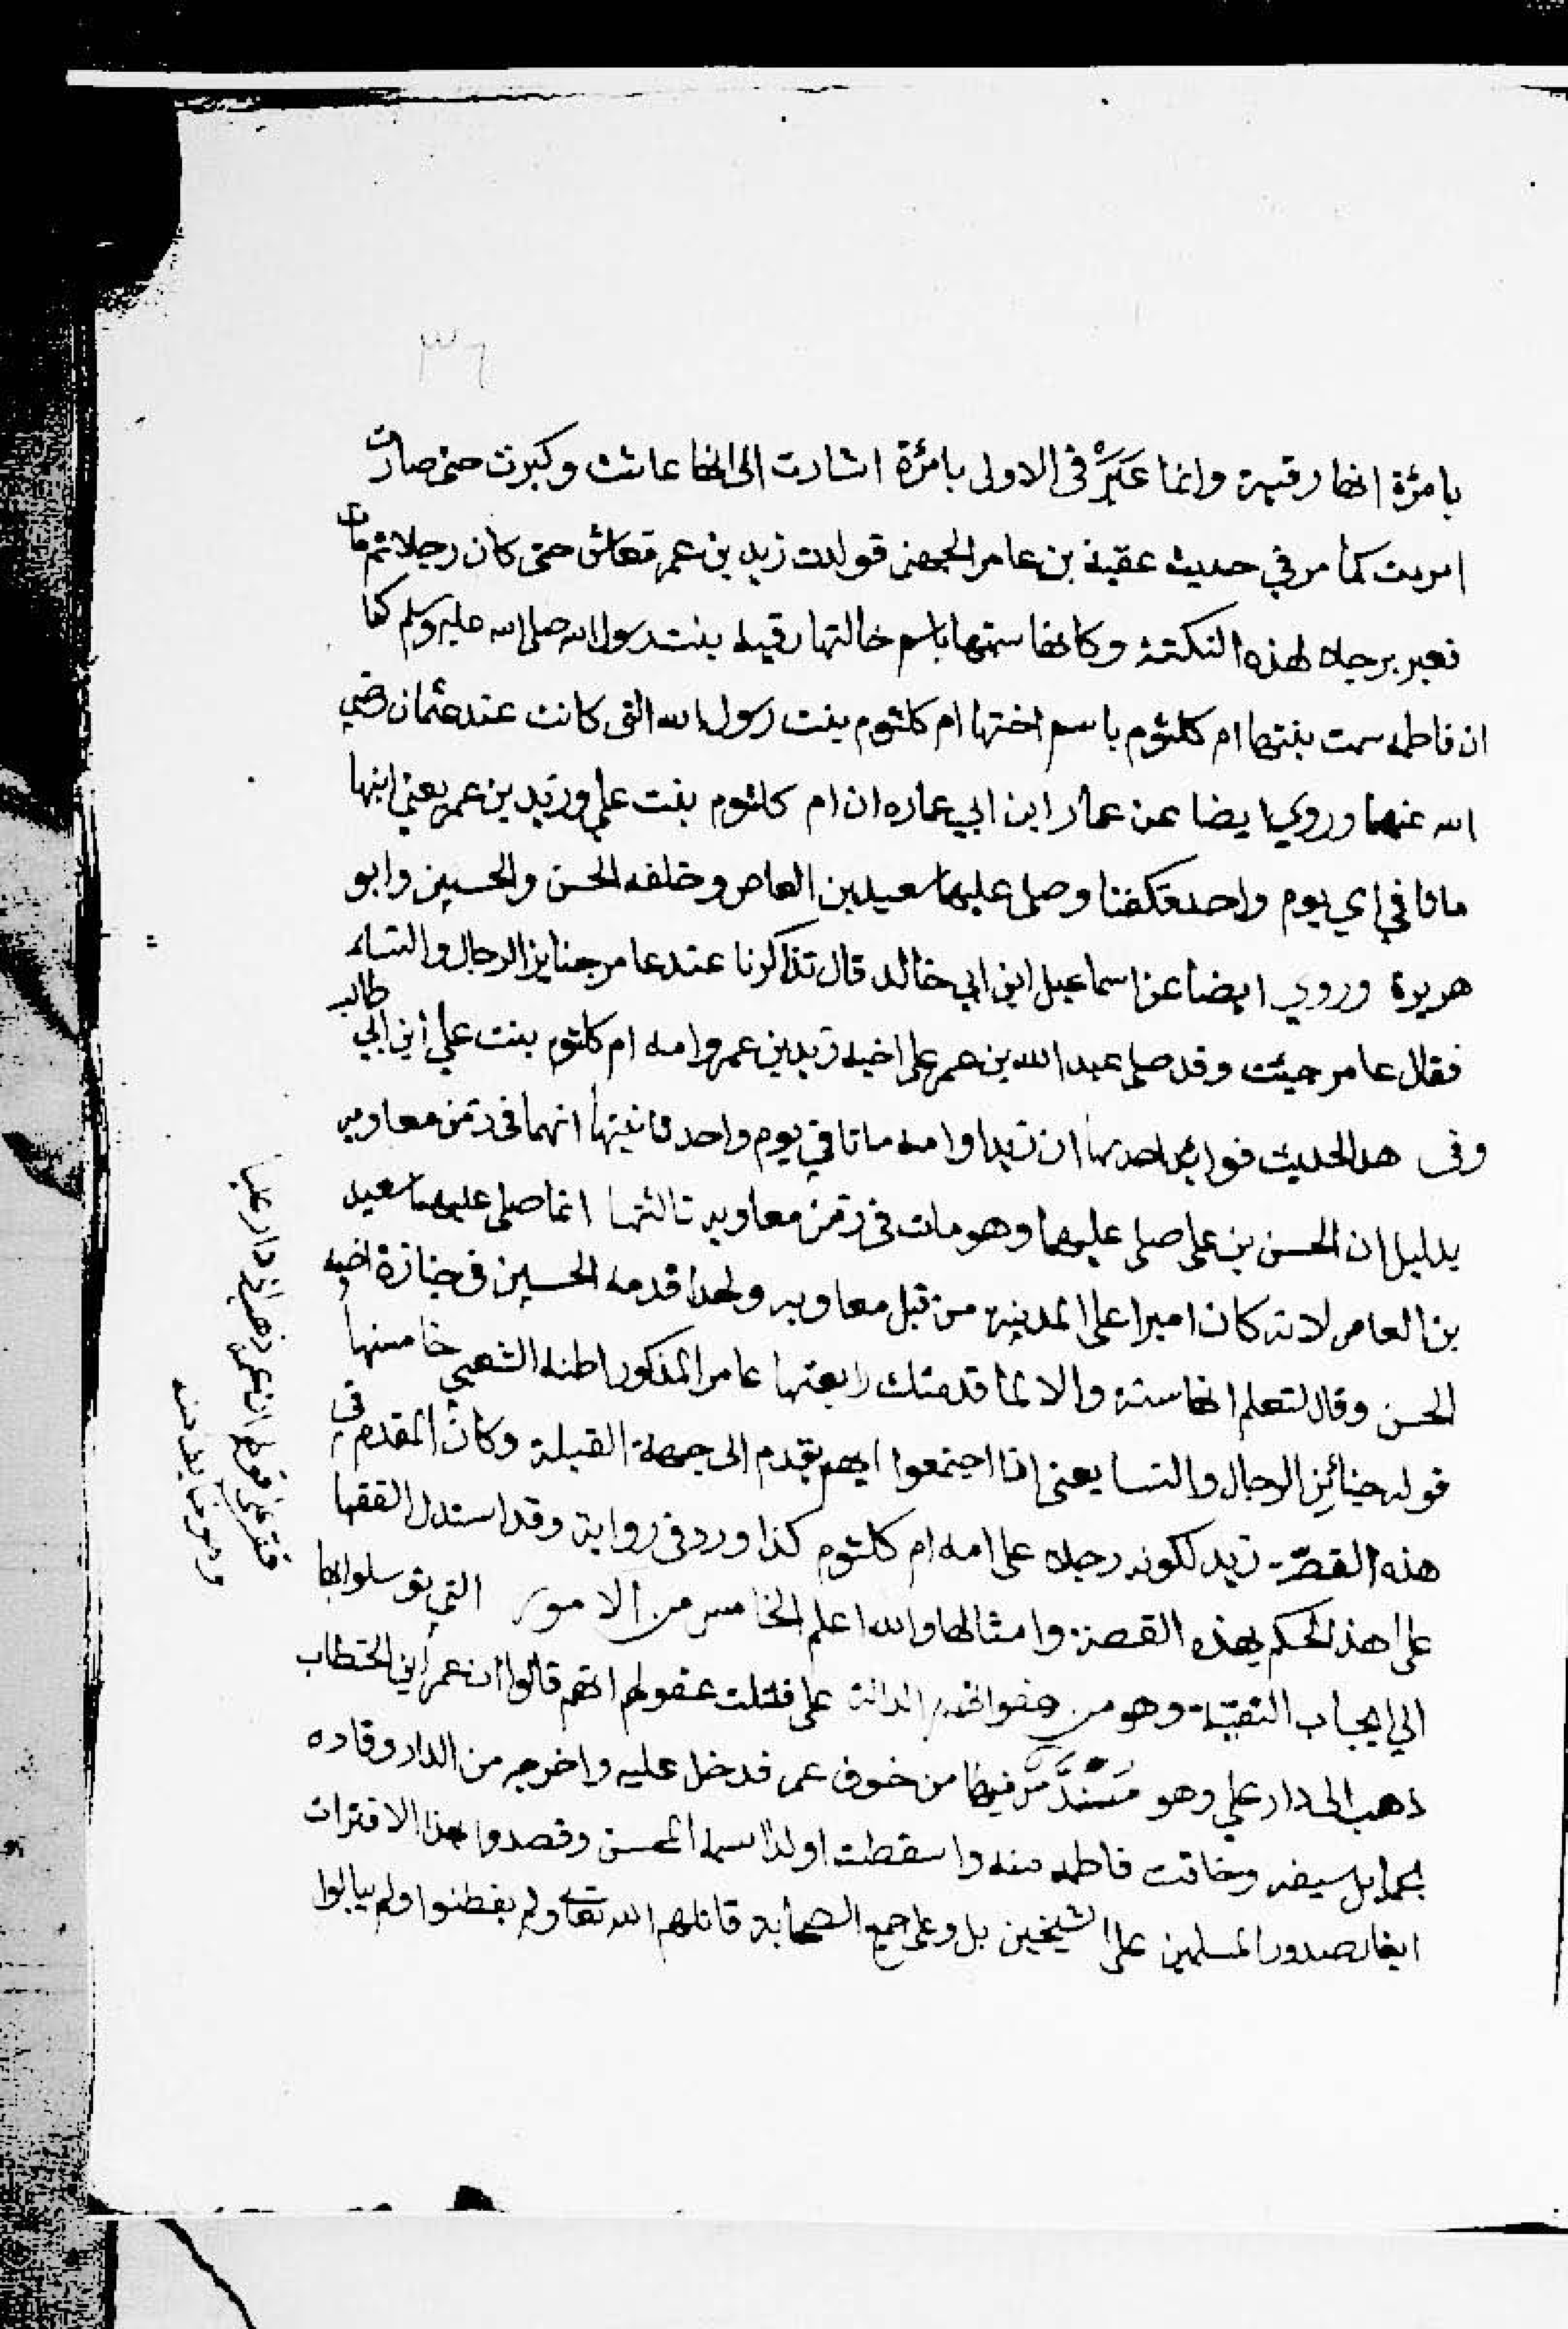 ٣٦
بامرٔة انها رقية وانما عَبَّرَ في الاولى بامرٔة اشارت الى انها عاشت وكبرت حتى صارت
امرءت كما مر في حديث عقبة بن عامر الجهني فولدت زيد بن عمر فعاش حتى كان رجلا ثم مات
فعبر برجلا لهذه النكتة وكانها سمتها باسم خالتها رقيه بنت رسول الله صلى الله عليه وسلم كما
ان فاطمه سمت بنتها ام كلثوم باسم اختها ام كلثوم بنت رسول الله التي كانت عند عثمان رضي
الله عنهما وروي ايضا عن عمار ابن ابي عماره ان ام كلثوم بنت علي وزيد بن عمر يعني ابنها
ماتا في اي يوم واحد فكفنا وصلى عليهما سعيد بن العاص وخلفه الحسن والحسين وابو
هريرة وروي ايضا عن اسماعيل ابن ابي خالد قال تذاكرنا عند عامر جنايز الرجال والنساء
فقال عامر جيئت وقد صلى عبد الله بن عمر على اخيه زيد بن عمر وامه ام كلثوم بنت علي ابن ابي طالب
وفي هذا الحديث فوائد احدىها ان زيدا وامه ماتا في يوم واحد ثانيتها انهما في زمن معاويه
بدليل ان الحسن بن علي صلى عليهما وهو مات في زمن معاويه ثالثتها انما صلى عليهما سعيد
بن العاص لانه كان اميرا على المدينة من قبل معاويه ولهذا قدمه الحسين في جنازة اخيه
الحسن وقال لتعلم انها سنة والا لما قدمتك رابعتها عامر المذكور اظنه الشعبي خامستها
قوله جنائز الرجال والنسا يعني اذا اجتمعوا ايهم يقدم الى جهة القبلة وكان المقدم في
هذه القصة زيد لكونه رجلا على امه ام كلثوم كذا ورد في رواية وقد استدل الفقها
على هذا الحكم بهذه القصة وامثالها والله اعلم الخامس من الامور التي توسلوا بها
الي ايجاب التقية وهو من هفواتهم الدالة على قلت عقولهم انهم قالوا ان عمر ابن الخطاب
ذهب الى دار علي وهو من خوف عمر فدخل عليه واخرجه من الدار وقاده
بحمايل سيفه وخافت فاطمه منه واسقطت اولدا اسمه المحسن وقصدوا بهذا الافترات
ايغار صدور المسلمين على الشيخين بل وعلى جميع الصحابة قاتلهم الله تعالى ولم يفطنوا ولم يبالوا
قف على قولهم ان عمر ذهب الى دار عليا